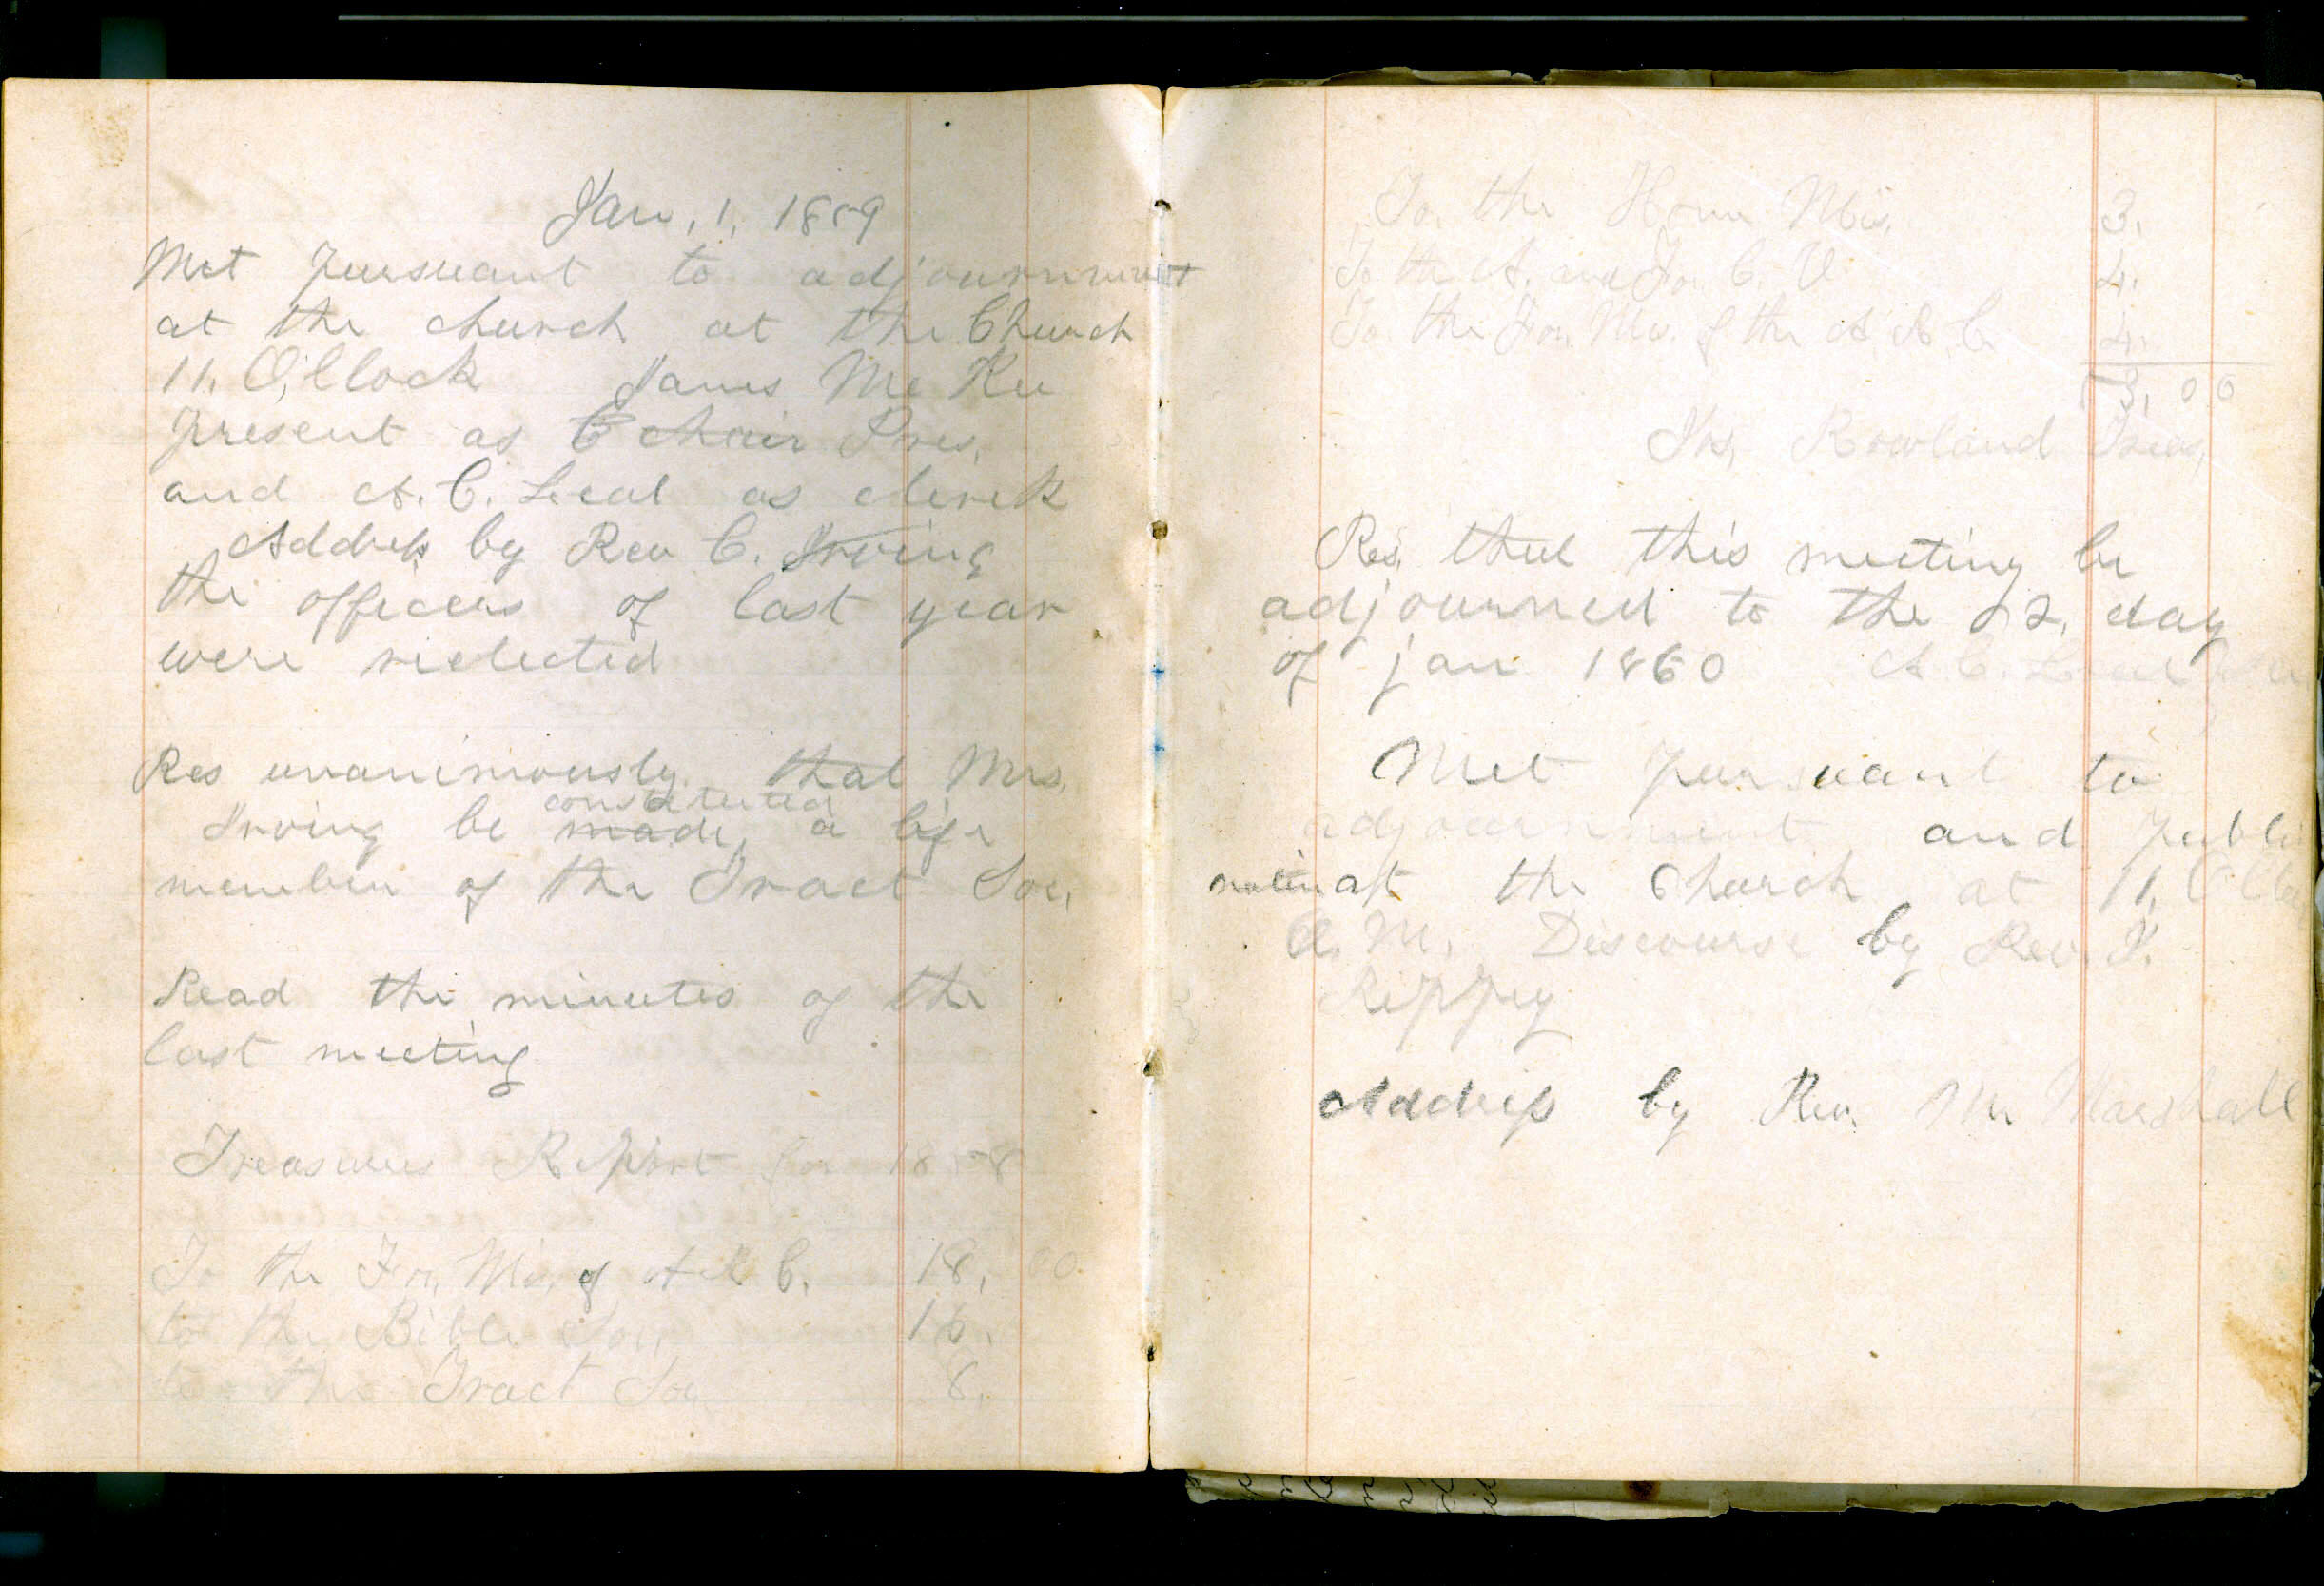 Jan, 1, 1859
Met pursuant to adjournment
at the church at the Church
11. O,Clock James Mc Kee
present as C chair Pres,
and A. C. Leeal as clerk
Address by Rev C. Irving
the officers of last year
were relected
Res unanimously that Mrs.
constituted
Irving be made, a life
member of the Tract Soc,
Read the minutes of the
last meeting
Treasures Report for 1858
To the For, Mis, of A R C. 18, 00
to the Bible Soc, 16.
to the Tract Soc 8.
To the Home Mis, 3.
To the A. and For. C. U. 4.
To the For, Mis. of the A. R. C. 4.
53,00
Rowland Treas,
Res, that this meeting be
adjourned to the 2, day
of jan 1860 A C.
Met pursuant to
adjournment and publi
notice at the Church at 11,
A. M. Discourse by Rev. J.
Rippey
Address by Rev. Mr Marshall